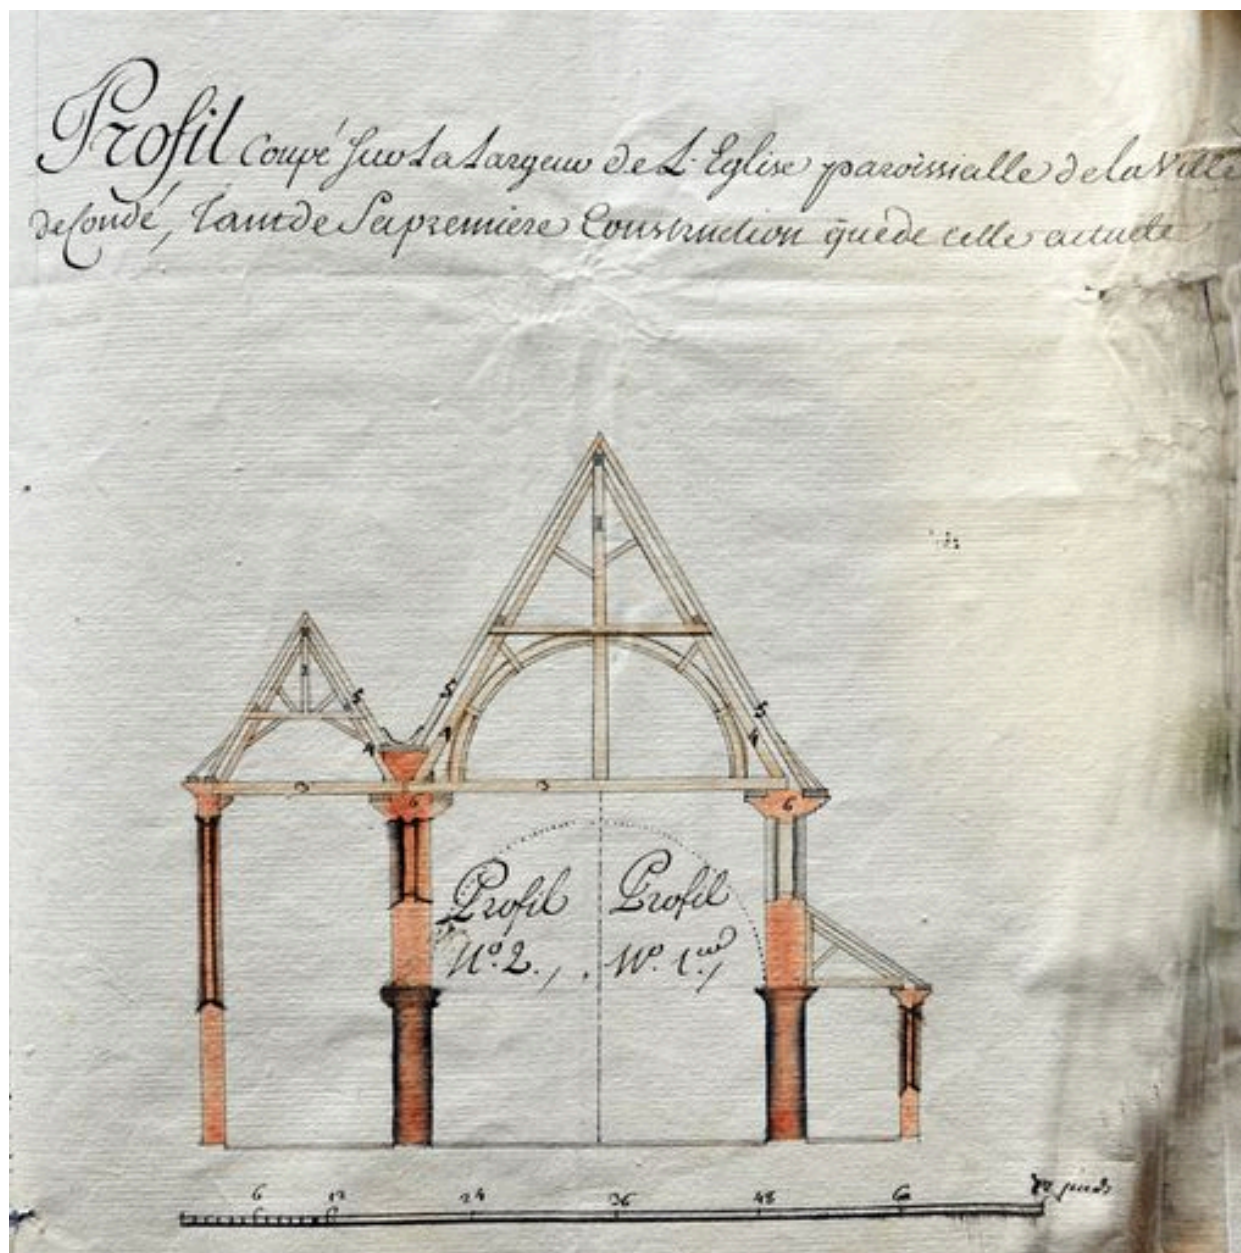 Profil Coupé Sur La Largeur de L'Eglise paroissialle de la Ville
de Condé, Tant de Sa premiere Construction que de celle actuele
5
5
5
4
4
4
3
3
6
6
Profil Profil
N.º 2., N.º 1.er,
6 12 24 36 48 60 72 pieds